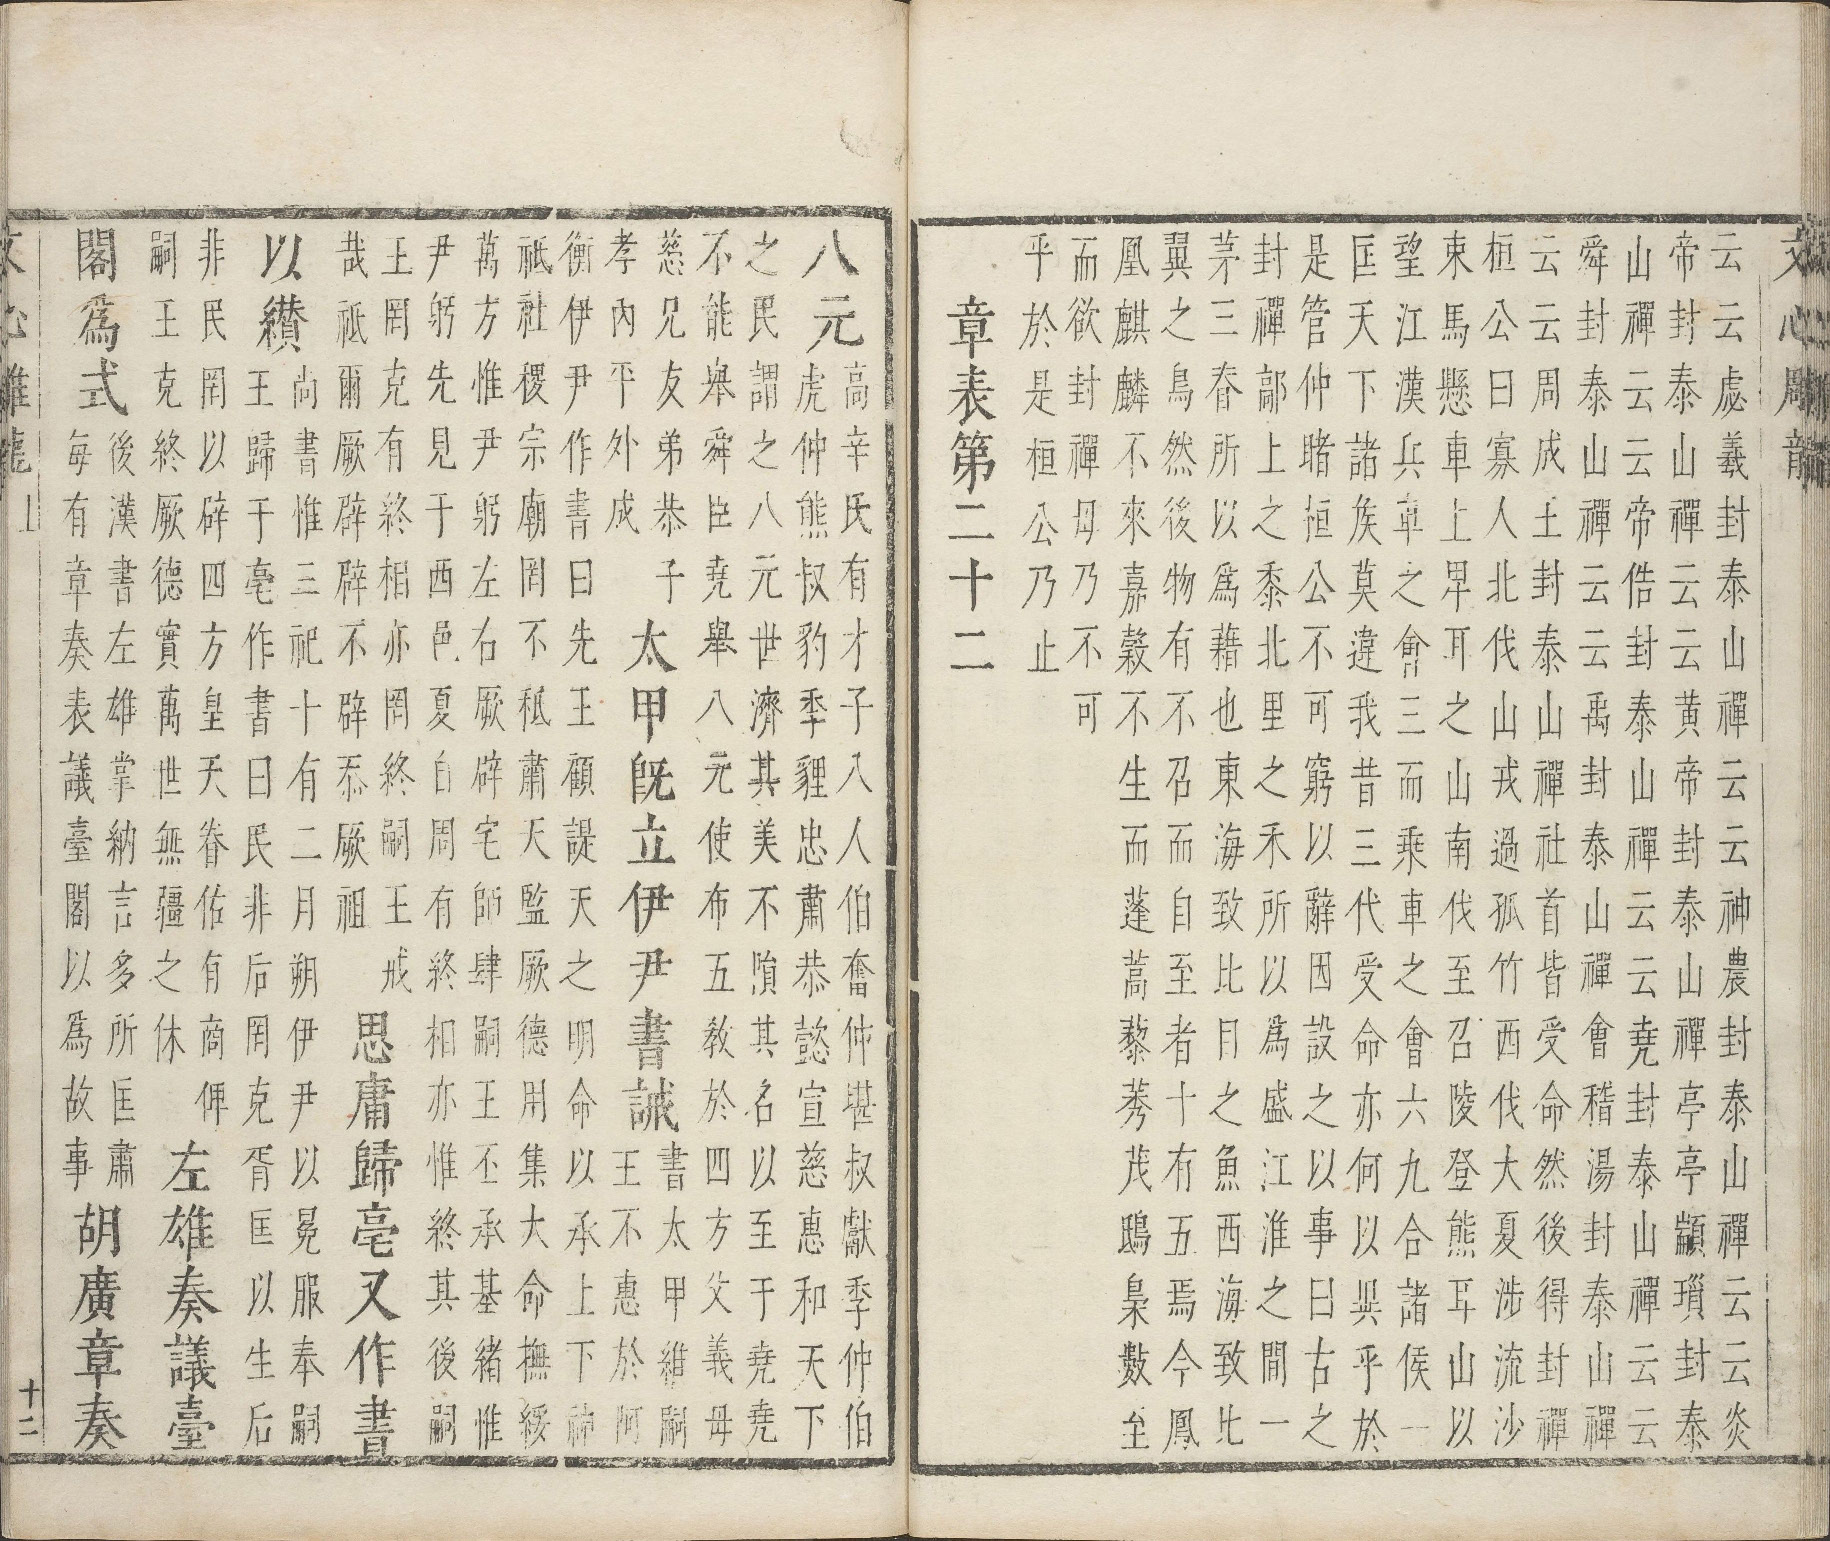 文心雕龍
云云虙羲封泰山禪云云神農封泰山禪云云炎
帝封泰山禪云云黄帝封泰山禪亭亭顓頊封泰
山禪云云帝俈封泰山禪云云堯封泰山禪云云
舜封泰山禪云云禹封泰山禪會稽湯封泰山禪
云云周成王封泰山禪社首皆受命然後得封禪
桓公曰寡人北伐山戎過孤竹西伐大夏涉流沙
束馬懸車上卑耳之山南伐至召陵登熊耳山以
望江漢兵車之會三而乘車之會六九合諸侯一
匡天下諸侯莫違我昔三代受命亦何以異乎於
是管仲睹桓公不可窮以辭因設之以事曰古之
封禪鄗上之黍北里之禾所以爲盛江淮之間一
茅三脊所以爲藉也東海致比目之魚西海致比
翼之鳥然後物有不召而自至者十有五焉今鳳
凰麒麟不來嘉穀不生而蓬蒿藜莠茂鴟梟數至
而欲封禪毋乃不可
乎於是桓公乃止
章表第二十二
八元
高辛氏有才子八人伯奮仲堪叔獻季仲伯
虎仲熊叔豹季貍忠肅恭懿宣慈惠和天下
之民謂之八元世濟其美不隕其名以至于堯堯
不能舉舜臣堯舉八元使布五教於四方父義母
慈兄友弟恭子
孝內平外成
太甲既立伊尹書誡
書太甲維嗣
王不惠於阿
衡伊尹作書曰先王顧諟天之明命以承上下神
祗社稷宗廟罔不祗肅天監厥德用集大命撫綏
萬方惟尹躬左右厥辟宅師肆嗣王丕承基緒惟
尹躬先見于西邑夏自周有終相亦惟終其後嗣
王罔克有終相亦罔終嗣王戒
哉祗爾厥辟辟不辟忝厥祖
思庸歸亳又作書
以纉
尚書惟三祀十有二月朔伊尹以冕服奉嗣
王歸于亳作書曰民非后罔克胥匡以生后
非民罔以辟四方皇天眷佑有商俾
嗣王克終厥德實萬世無疆之休
左雄奏議臺
閣爲式
後漢書左雄掌納言多所匡肅
每有章奏表議臺閣以爲故事
胡廣章奏
文心雕龍 十二